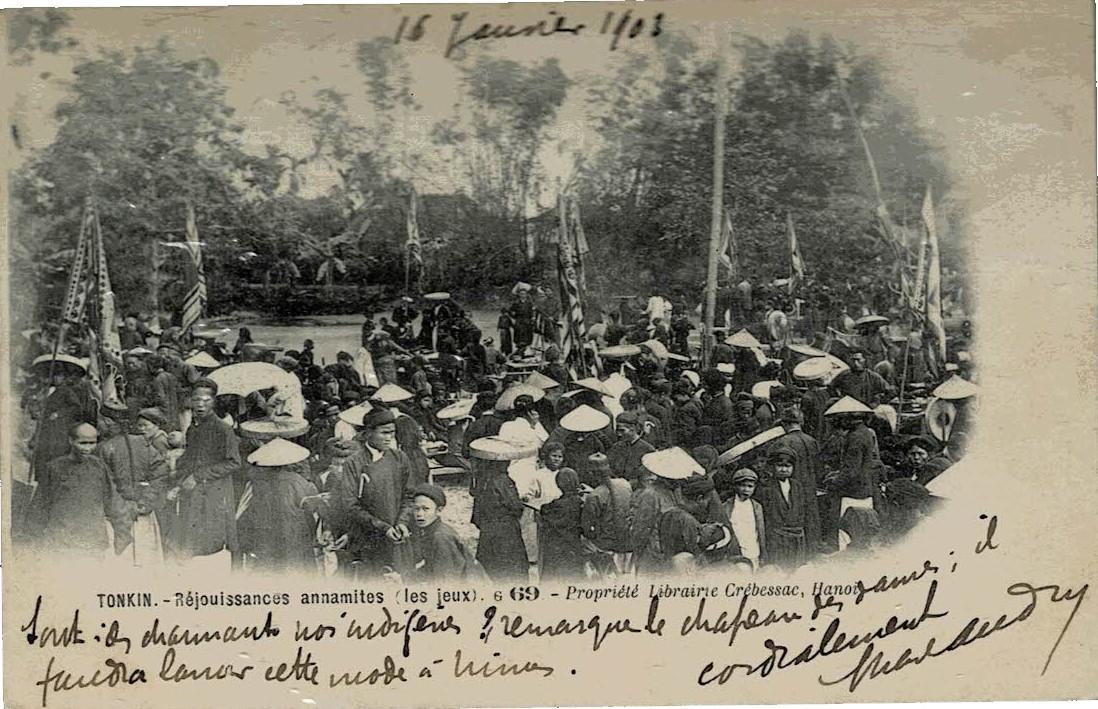 16 Janvier 1903
TONKIN. - Réjouissances annamites (les jeux). 6 69 - Propriété Librairie Crébessac, Hanoi
Sont-ils charmants nos indigènes ? remarque le chapeau des dames ; il
faudra lancer cette mode à Nimes .
cordialement